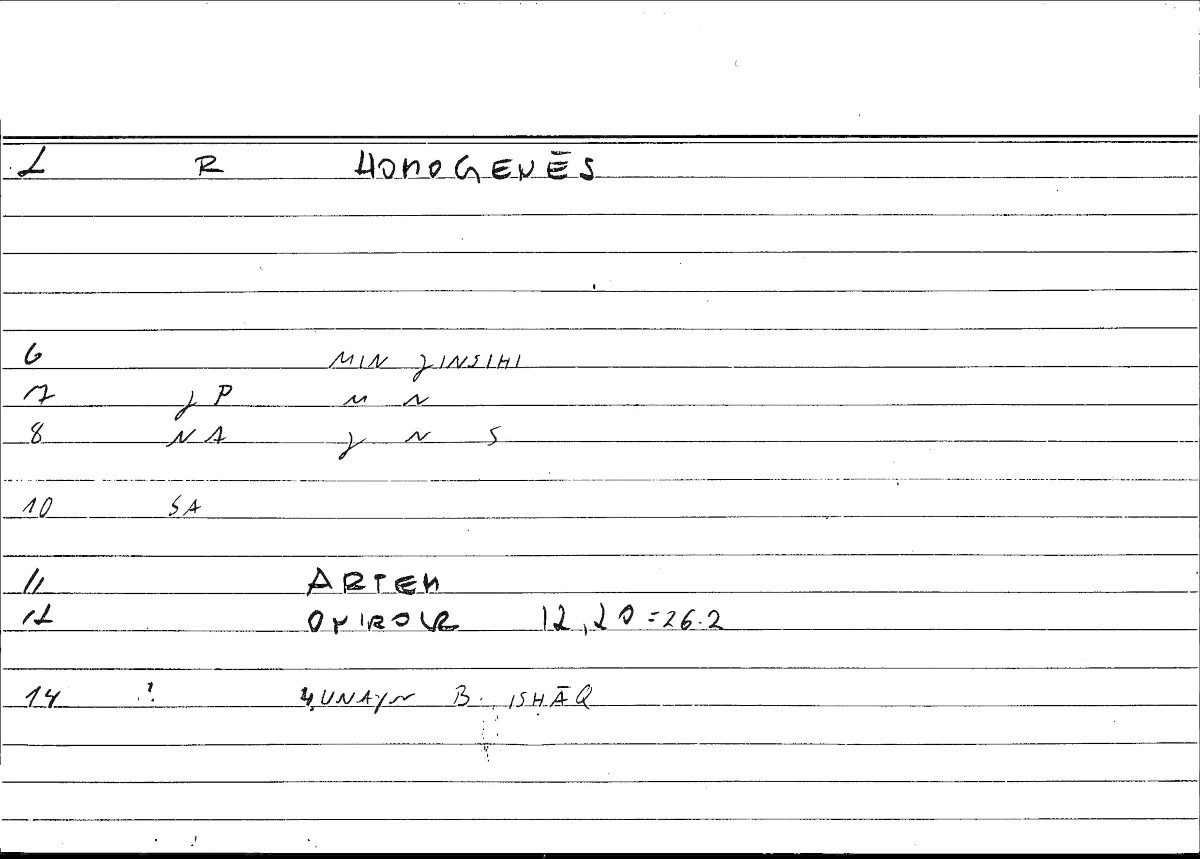 2 R HOMOGENĒS
6 MIN JINSIHI
7 J P M N
8 N A J N S
10 S A
11 ARTEM
12 12,20 = 26.2
14 ? ḤUNAYN B. ISḤĀQ